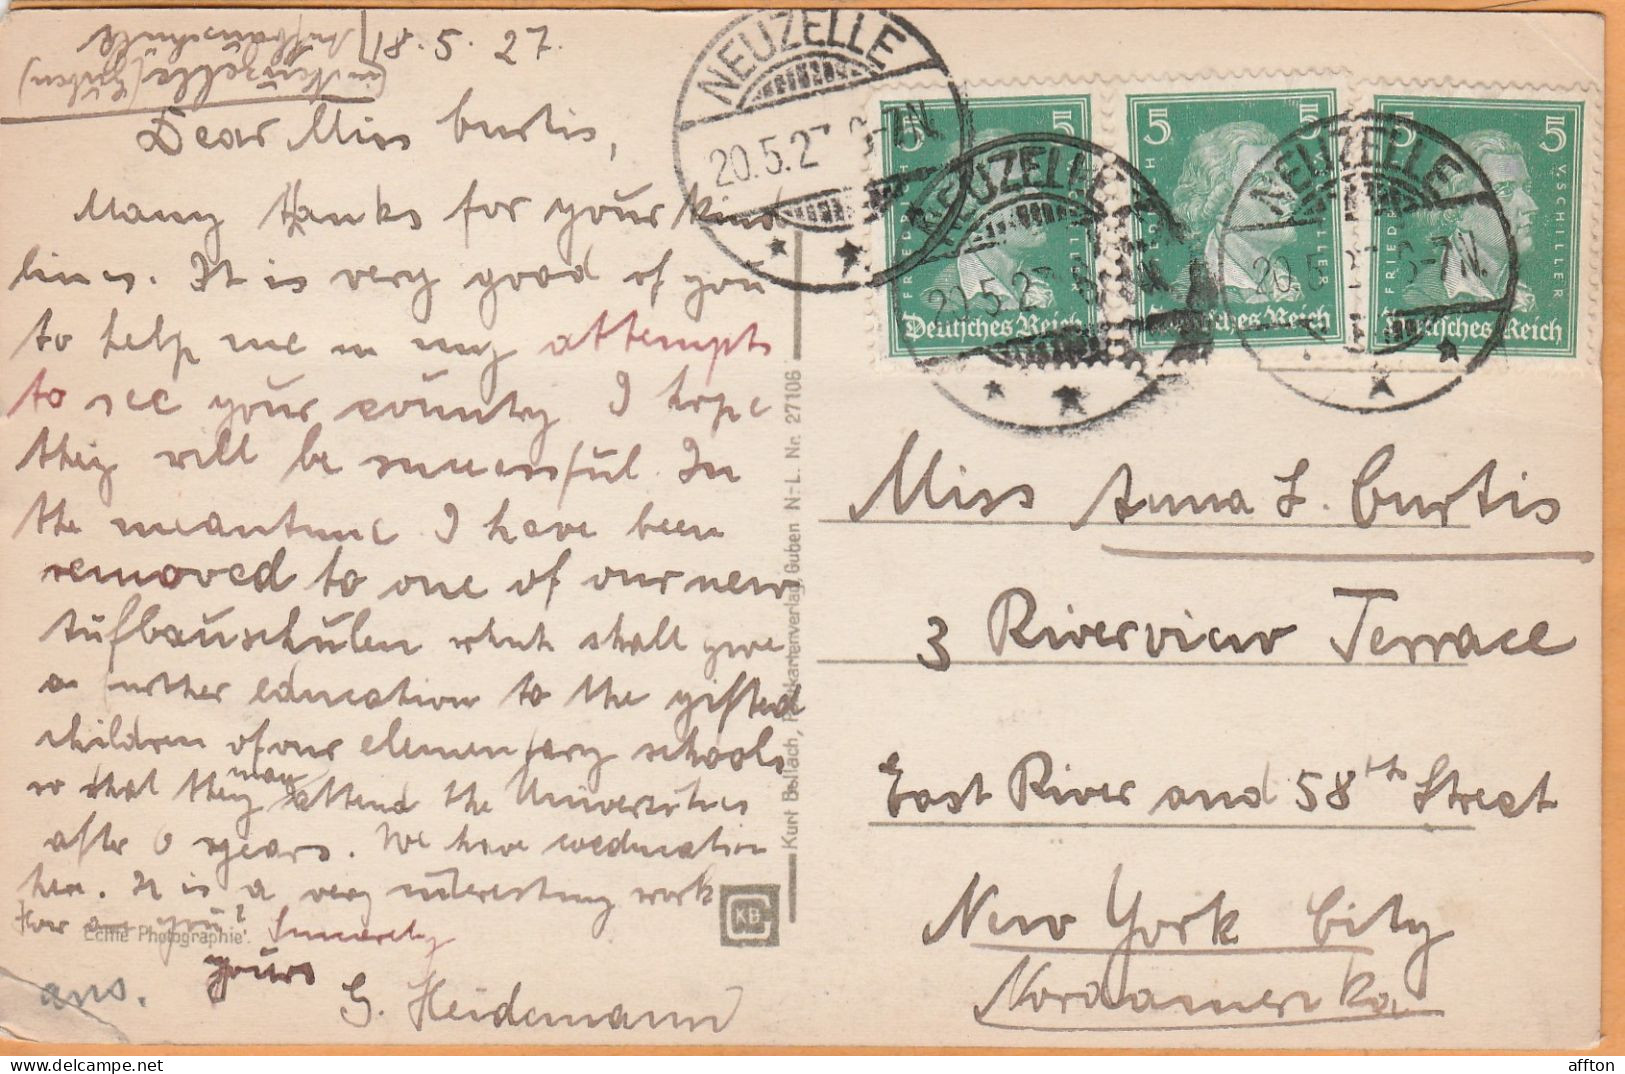 18. 5. 27.
Aufbauschule
in Neuzelle (Guben)
Dear Miss Curtis,
Many thanks for your kind
lines. It is very good of you
to help me in my attempts
to see your country. I hope
they will be successful. In
the meantime I have been
removed to one of our new
Aufbauschulen which shall give
a further education to the gifted
children of our elementary schools
so that they may attend the Universities
after 6 years. We have coeducation
here. It is a very interesting work
How are you? Sincerely
yours
G. Heidemann
ans.
Echte Photographie.
Kurt Bollach, Postkartenverlag, Guben N.-L. Nr. 27106
KB
NEUZELLE
20.5.27. 6-7N.
NEUZELLE
20.5.27. 6-7N.
NEUZELLE
20.5.27. 6-7N.
5 5
FRIEDRICH V. SCHILLER
Deutsches Reich
5 5
FRIEDRICH V. SCHILLER
Deutsches Reich
5 5
FRIEDRICH V. SCHILLER
Deutsches Reich
Miss Anna L. Curtis
3 Riverview Terrace
East River and 58th Street
New York City
Nordamerika
affton